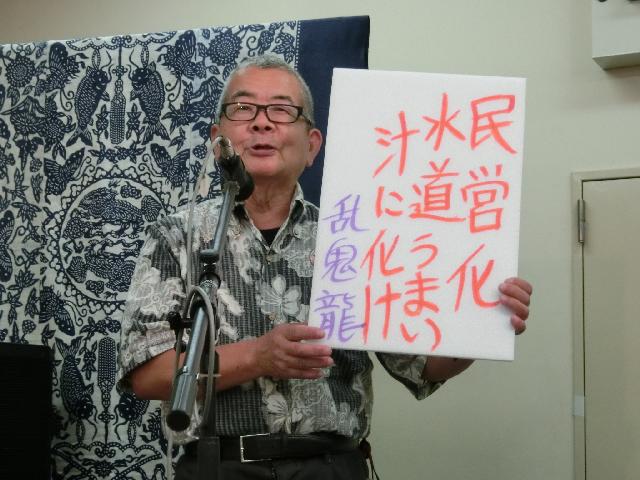 民営化
水道うまい
汁に化け
乱鬼龍